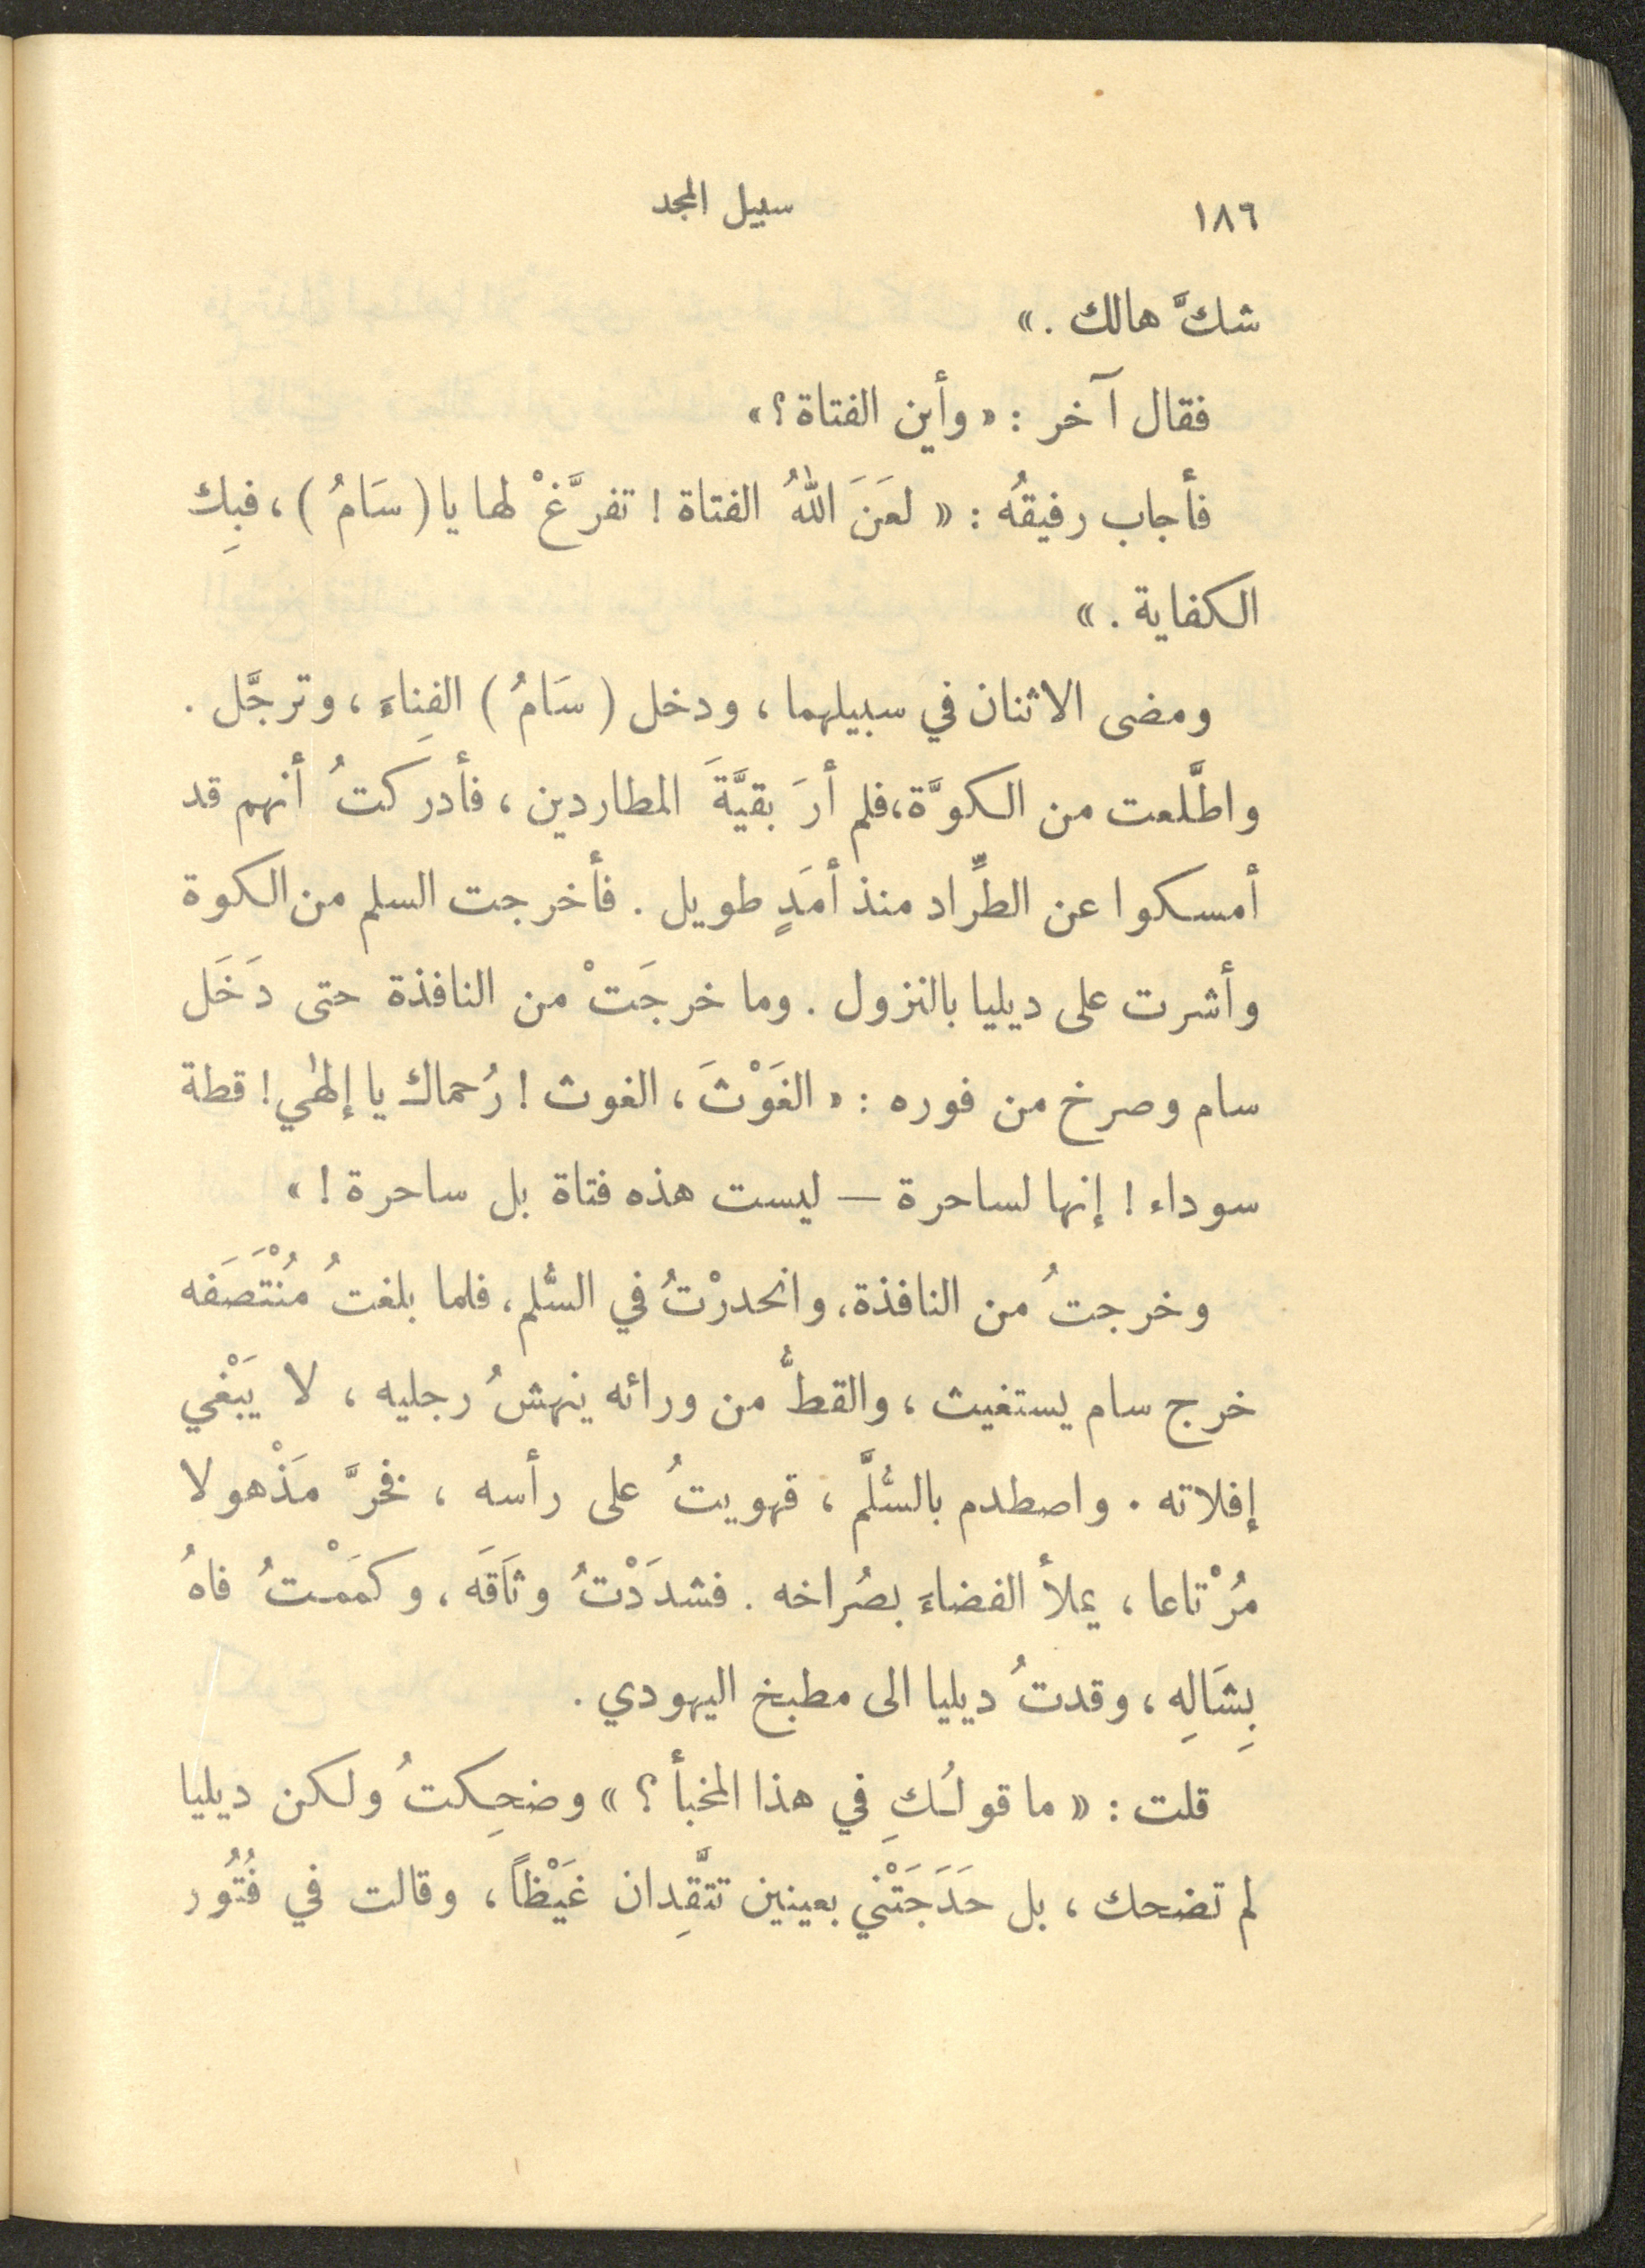 ١٨٦ سبيل المجد
شكَّ هالك . »
فقال آخر : « وأين الفتاة ؟ »
فأجاب رفيقُه : « لعَنَ اللهُ الفتاة ! تفرَّغْ لها يا ( سَامُ ) ، فبِك
الكفاية . »
ومضى الاثنان في سبيلهما ، ودخل ( سَامُ ) الفِناءَ ، وترجَّل .
واطَّلعت من الكوَّة ، فلم أرَ بقيَّةَ المطاردين ، فأدرَكتُ أنهم قد
أمسكوا عن الطِّراد منذ أمَدٍ طويل . فأخرجت السلم من الكوة
وأشرت على ديليا بالنزول . وما خرجَتْ من النافذة حتى دَخَل
سام وصرخ من فوره : « الغَوْثَ ، الغوث ! رُحماك يا إلهٰي ! قطة
سوداء ! إنها لساحرة — ليست هذه فتاة بل ساحرة ! »
وخرجتُ من النافذة ، وانحدرْتُ في السُّلم ، فلما بلغتُ مُنْتَصَفه
خرج سام يستغيث ، والقطُّ من ورائه ينهشُ رجليه ، لا يَبْغي
إفلاته . واصطدم بالسُّلَّم ، فهويتُ على رأسه ، فخرَّ مَذْهولا
مُرْتاعا ، يملأ الفضاءَ بصُراخه . فشدَدْتُ وثَاقَه ، وكمَمْتُ فاهُ
بِشَالِهِ ، وقدتُ ديليا الى مطبخ اليهودي .
قلت : « ما قولُكِ في هذا المخبأ ؟ » وضحِكتُ ولكن ديليا
لم تضحك ، بل حَدَجَتْني بعينين تتَّقِدان غَيْظاً ، وقالت في فُتُور